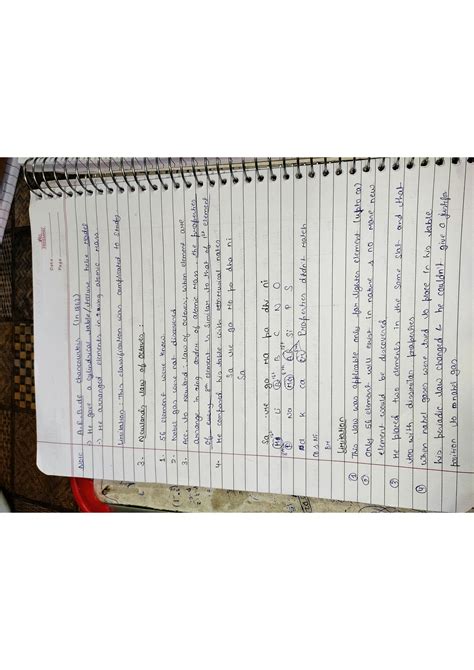 Date
Page
Note A.E.B.de chancourtois (In 1862)
1) He gave a cylindrical table/
2) He arranged elements in atomic mass.
Limitation: This classification was complicated to study
3. Newlands law of octaves:
1. 56 element were known.
2. Nobel gas were not discovered
3. Acc to newland: law of octaves; when element are
arrange in order of atomic mass the properties
of every element is similar to that of 1st element
4. He compared his table with musical notes
Sa re ga ma pa dha ni
Sa
Sa re ga ma pa dha ni
Li B C N O
Na Si P S
K Ca Properties didn't match
Limitation
① This law was applicable only for lighter element (upto ca)
② only 56 element will exist in nature & no more new
element could be discovered
③ He placed two elements in the same slot and that
too with dissimilar properties
④ when nobel gases were tried to place in his table
his periodic law changed & he couldn't give a
position to nobel gas